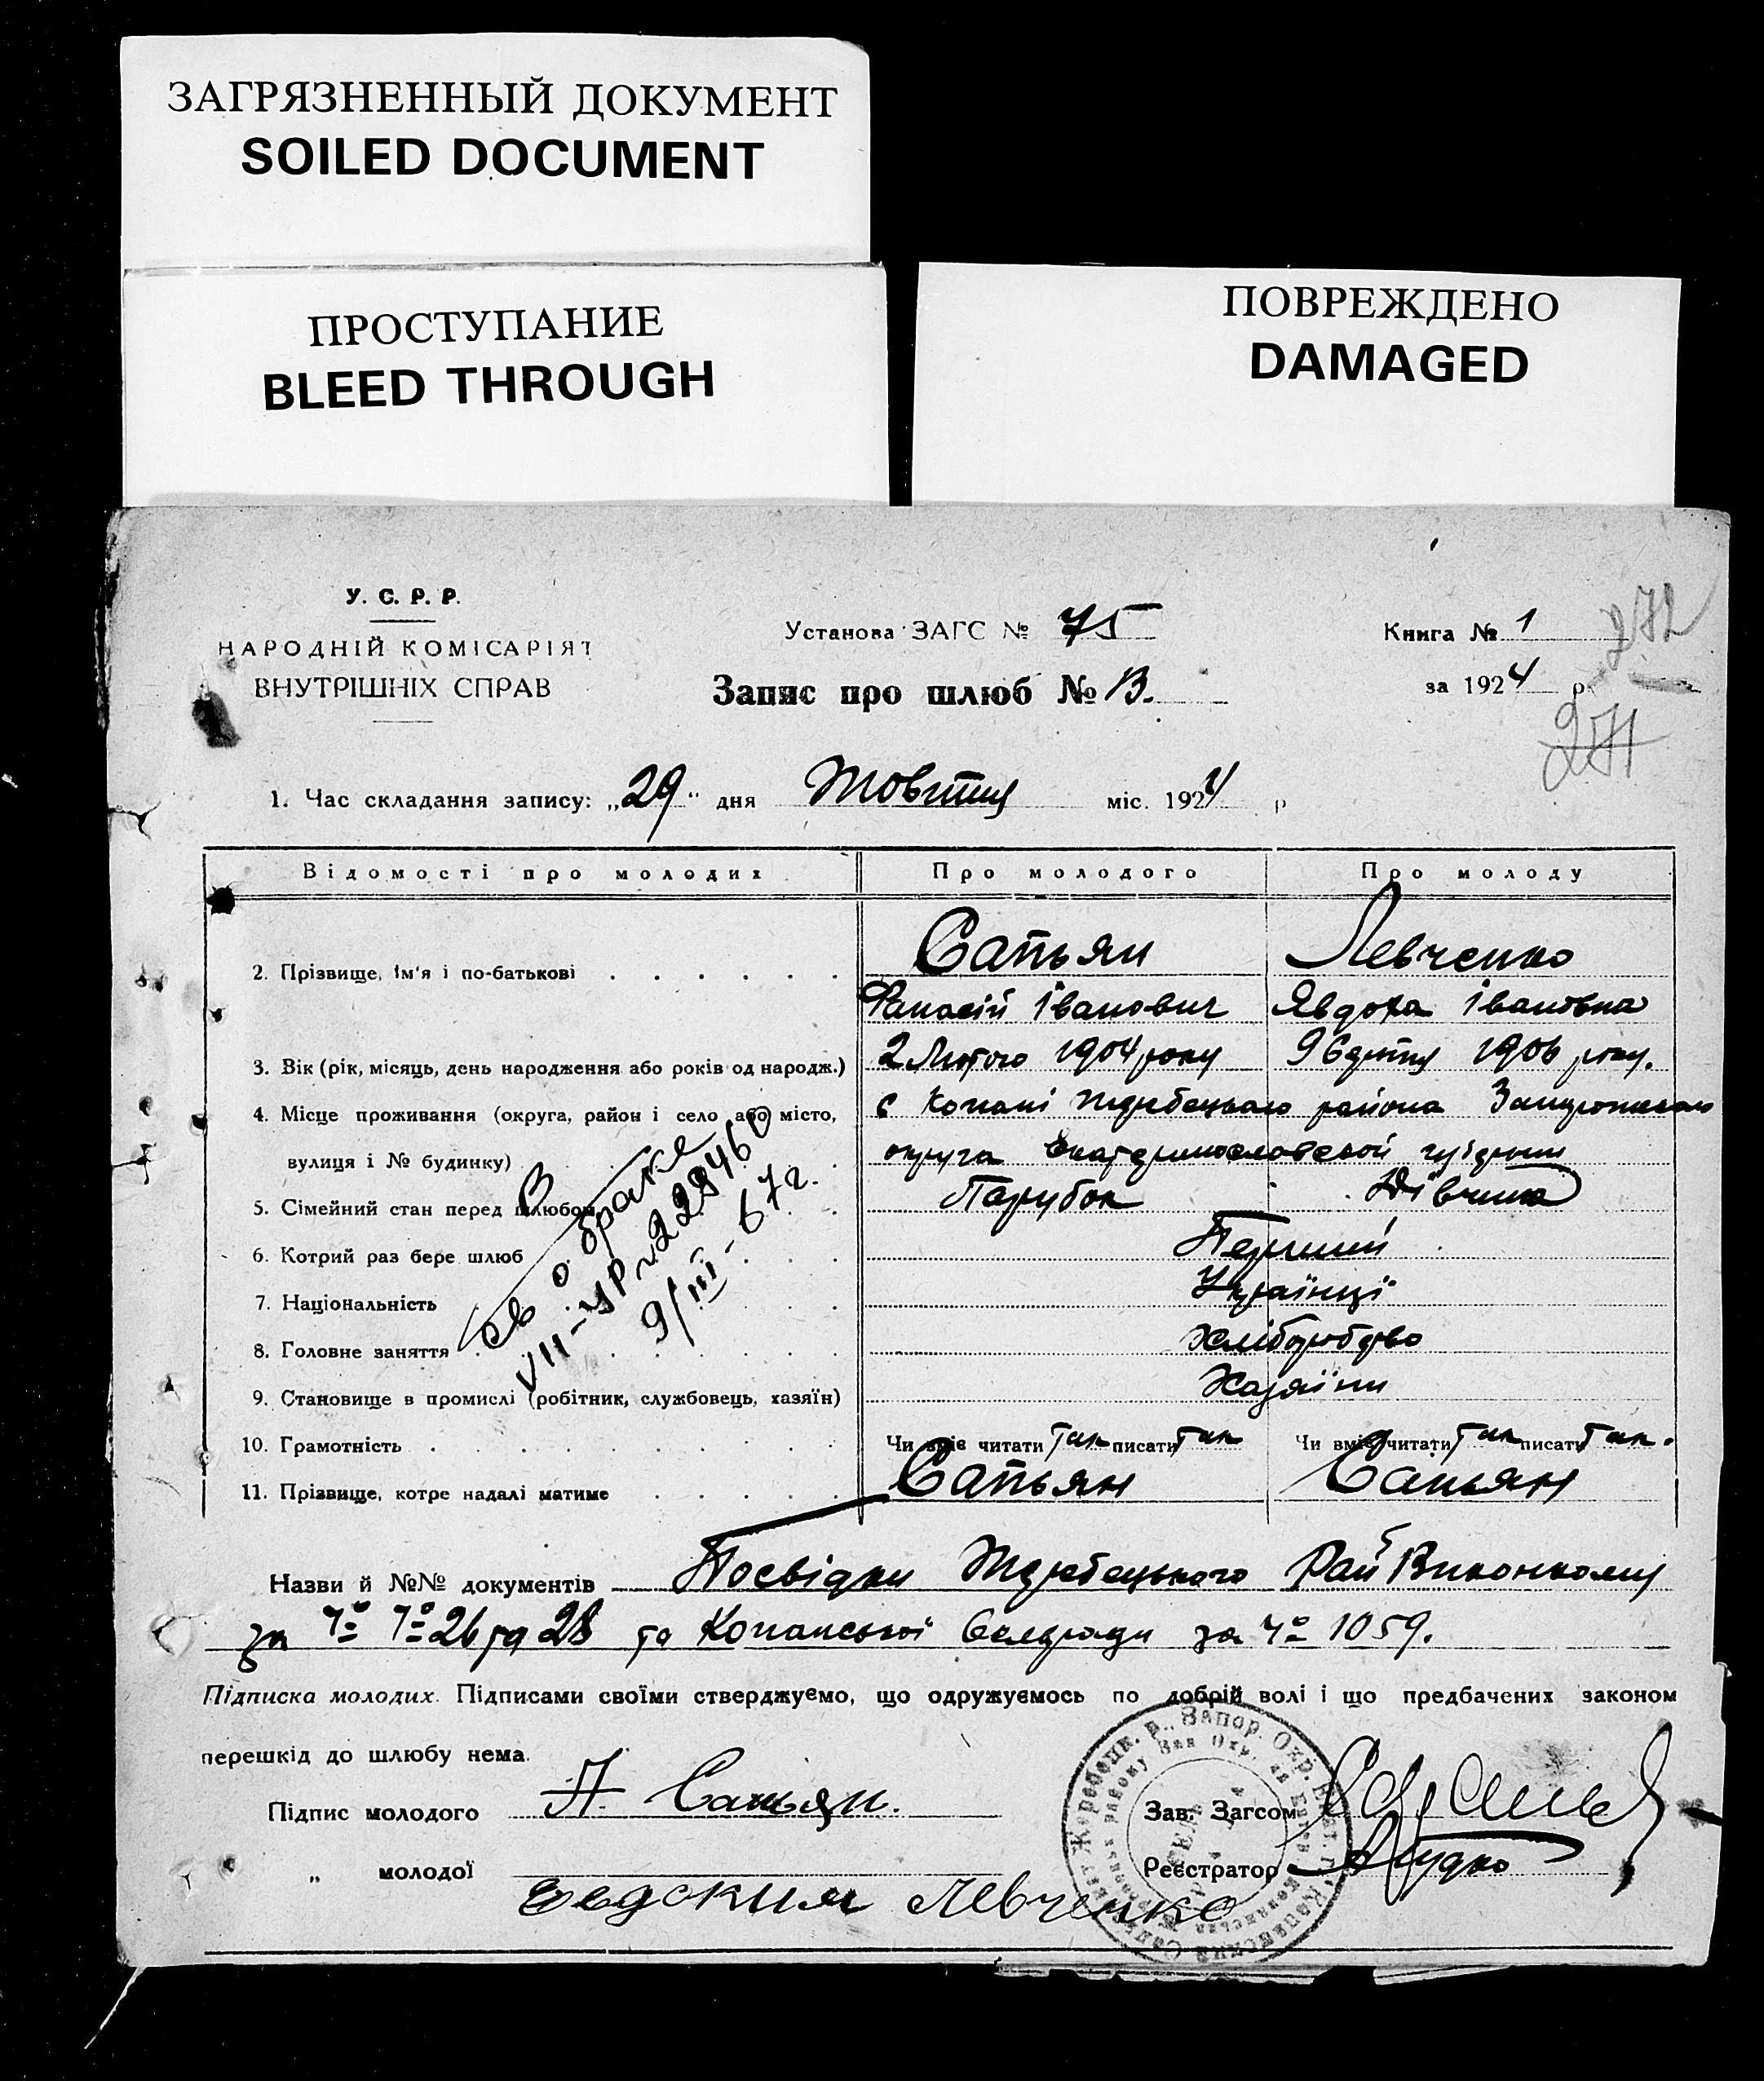 ЗАГРЯЗНЕННЫЙ ДОКУМЕНТ
SOILED DOCUMENT
ПРОСТУПАНИЕ
BLEED THROUGH
ПОВРЕЖДЕНО
DAMAGED
У. С. Р. Р.
НАРОДНІЙ КОМІСАРІЯТ
ВНУТРІШНІХ СПРАВ
Установа ЗАГС № 75
Запис про шлюб № 13.
Книга № 1
за 1924 р.
272
271
1. Час складання запису: „29" дня Жовтня міс. 1924 р
Відомості про молодих Про молодого Про молоду
2. Прізвище, ім'я і по-батькові Сатьян Левченко
Панасій Іванович Явдоха Івановна
3. Вік (рік, місяць, день народження або років од народж.) 2 Лютого 1904 року 9 Січня 1906 року.
4. Місце проживання (округа, район і село або місто, с Копані Жеребецького района Запорожського
вулиця і № будинку) округа Екатеринославської губернии
5. Сімейний стан перед шлюбом Парубок Дівчина
6. Котрий раз бере шлюб Перший
7. Національність Українці
8. Головне заняття Хліборобство
9. Становище в промислі (робітник, службовець, хазяїн) Хазяїни
10. Грамотність Чи вміє читати так писати так Чи вміє читати так писати так.
11. Прізвище, котре надалі матиме Сатьян Сатьян
св о браке
VII-УР № 228460
9/III-67г.
Назви й №№ документів Посвідки Жеребецького Рай Виконкому
за № № 26 та 28 та Копанської Сельради за № 1059.
Підписка молодих. Підписами своїми стверджуємо, що одружуємось по добрій волі і що предбачених законом
перешкід до шлюбу нема.
Підпис молодого А. Сатьян.
Зав. Загсом
„ молодої Евдокия Левченко
Реєстратор